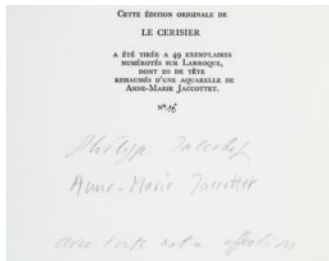 Cette édition originale de
LE CERISIER
a été tirée a 49 exemplaires
numérotés sur Larroque,
dont 20 de tête
rehaussés d'une aquarelle de
Anne-Marie Jaccottet.
Nº
Philippe Jaccottet
Anne-Marie Jaccottet
avec toute notre affection